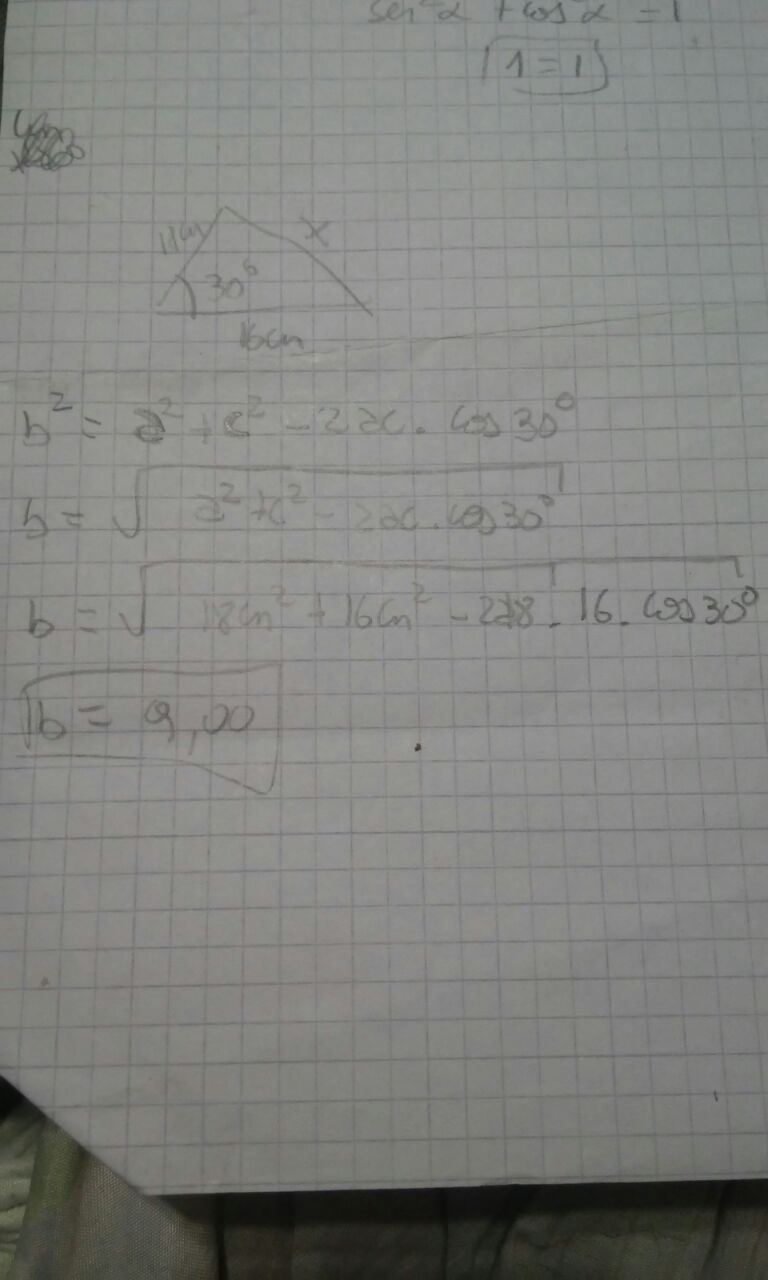 sen²α + cos²α = 1
1 = 1
11cm x
30°
16cm
b² = a² + c² - 2ac. cos 30°
b = √a² + c² - 2ac. cos 30°
b = √18cm² + 16cm² - 2 . 16 . cos 30°
b = 9,00